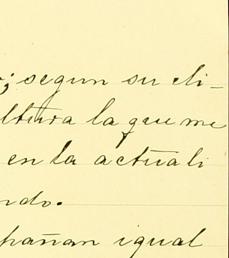 ; segun su cli-
ltura la que me
en la actuali
ndo.
pañan igual